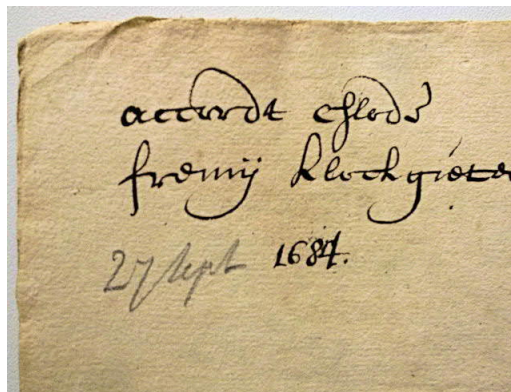 accordt Chlodé
fremij klockgieter
27 sept 1684.